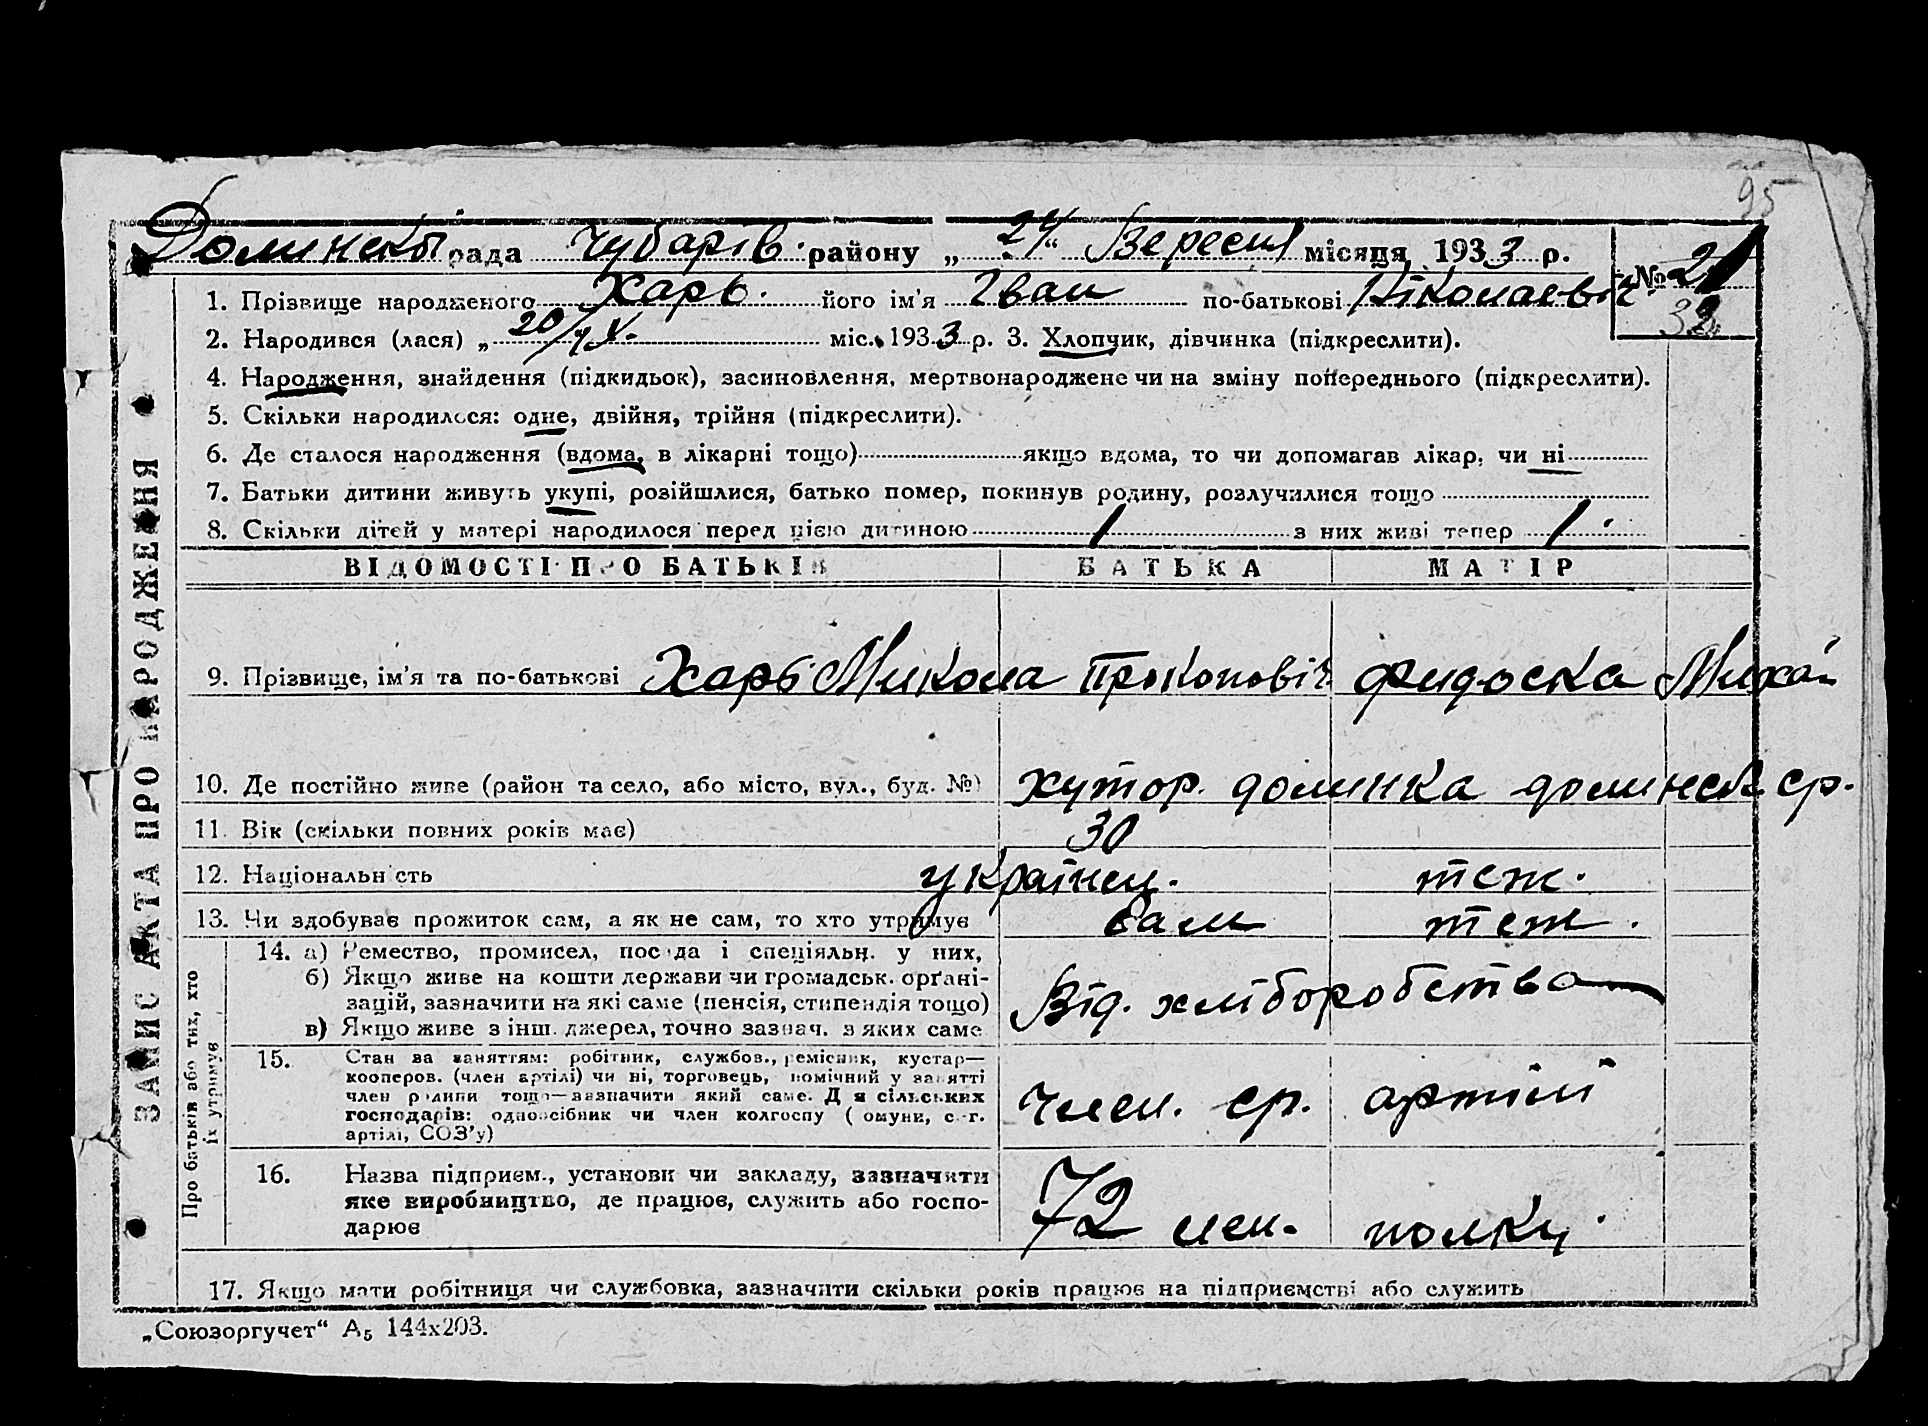 95
Долинській рада Чубарів. району „24“ Вересня місяця 1933 р. № 21
32
1. Прізвище народженого Харь. його ім'я Іван по-батькові Ніколаевіч
2. Народився (лася) „20/IX. міс. 1933 р. 3. Хлопчик, дівчинка (підкреслити).
4. Народження, знайдення (підкидьок), засиновлення, мертвонароджене чи на зміну попереднього (підкреслити).
5. Скільки народилося: одне, двійня, трійня (підкреслити).
6. Де сталося народження (вдома, в лікарні тощо) якщо вдома, то чи допомагав лікар, чи ні
7. Батьки дитини живуть укупі, розійшлися, батько помер, покинув родину, розлучилися тощо
8. Скільки дітей у матері народилося перед цією дитиною 1 з них живі тепер 1.
ВІДОМОСТІ ПРО БАТЬКІВ БАТЬКА МАТІР
9. Прізвище, ім'я та по-батькові Харь Микола Прокоповіч Фидоска Миха
10. Де постійно живе (район та село, або місто, вул., буд. №) хутор. долинка долинськ ср.
11. Вік (скільки повних років має) 30
12. Національність українец. теж.
13. Чи здобуває прожиток сам, а як не сам, то хто утримує сам теж.
14. а) Ремество, промисел, посада і спеціяльн. у них,
б) Якщо живе на кошти держави чи громадськ. орґані-
зацій, зазначити на які саме (пенсія, стипендія тощо)
в) Якщо живе з інш. джерел, точно зазнач. з яких саме
Від. хліборобства
15. Стан за заняттям: робітник, службов., ремісник, кустар—
кооперов. (член артілі) чи ні, торговець, помічний у занятті
член родини тощо—зазначити який саме. Для сільських
господарів: одноосібник чи член колгоспу (комуни, с.-г.
артілі, СОЗ'у)
член. ср. артілі
16. Назва підприєм., установи чи закладу, зазначити
яке виробництво, де працює, служить або госпо-
дарює
72 полку.
17. Якщо мати робітниця чи службовка, зазначити скільки років працює на підприємстві або служить
„Союзоргучет“ А5 144х203.
ЗАПИС АКТА ПРО НАРОДЖЕННЯ
Про батьків або тих, хто
їх утримує